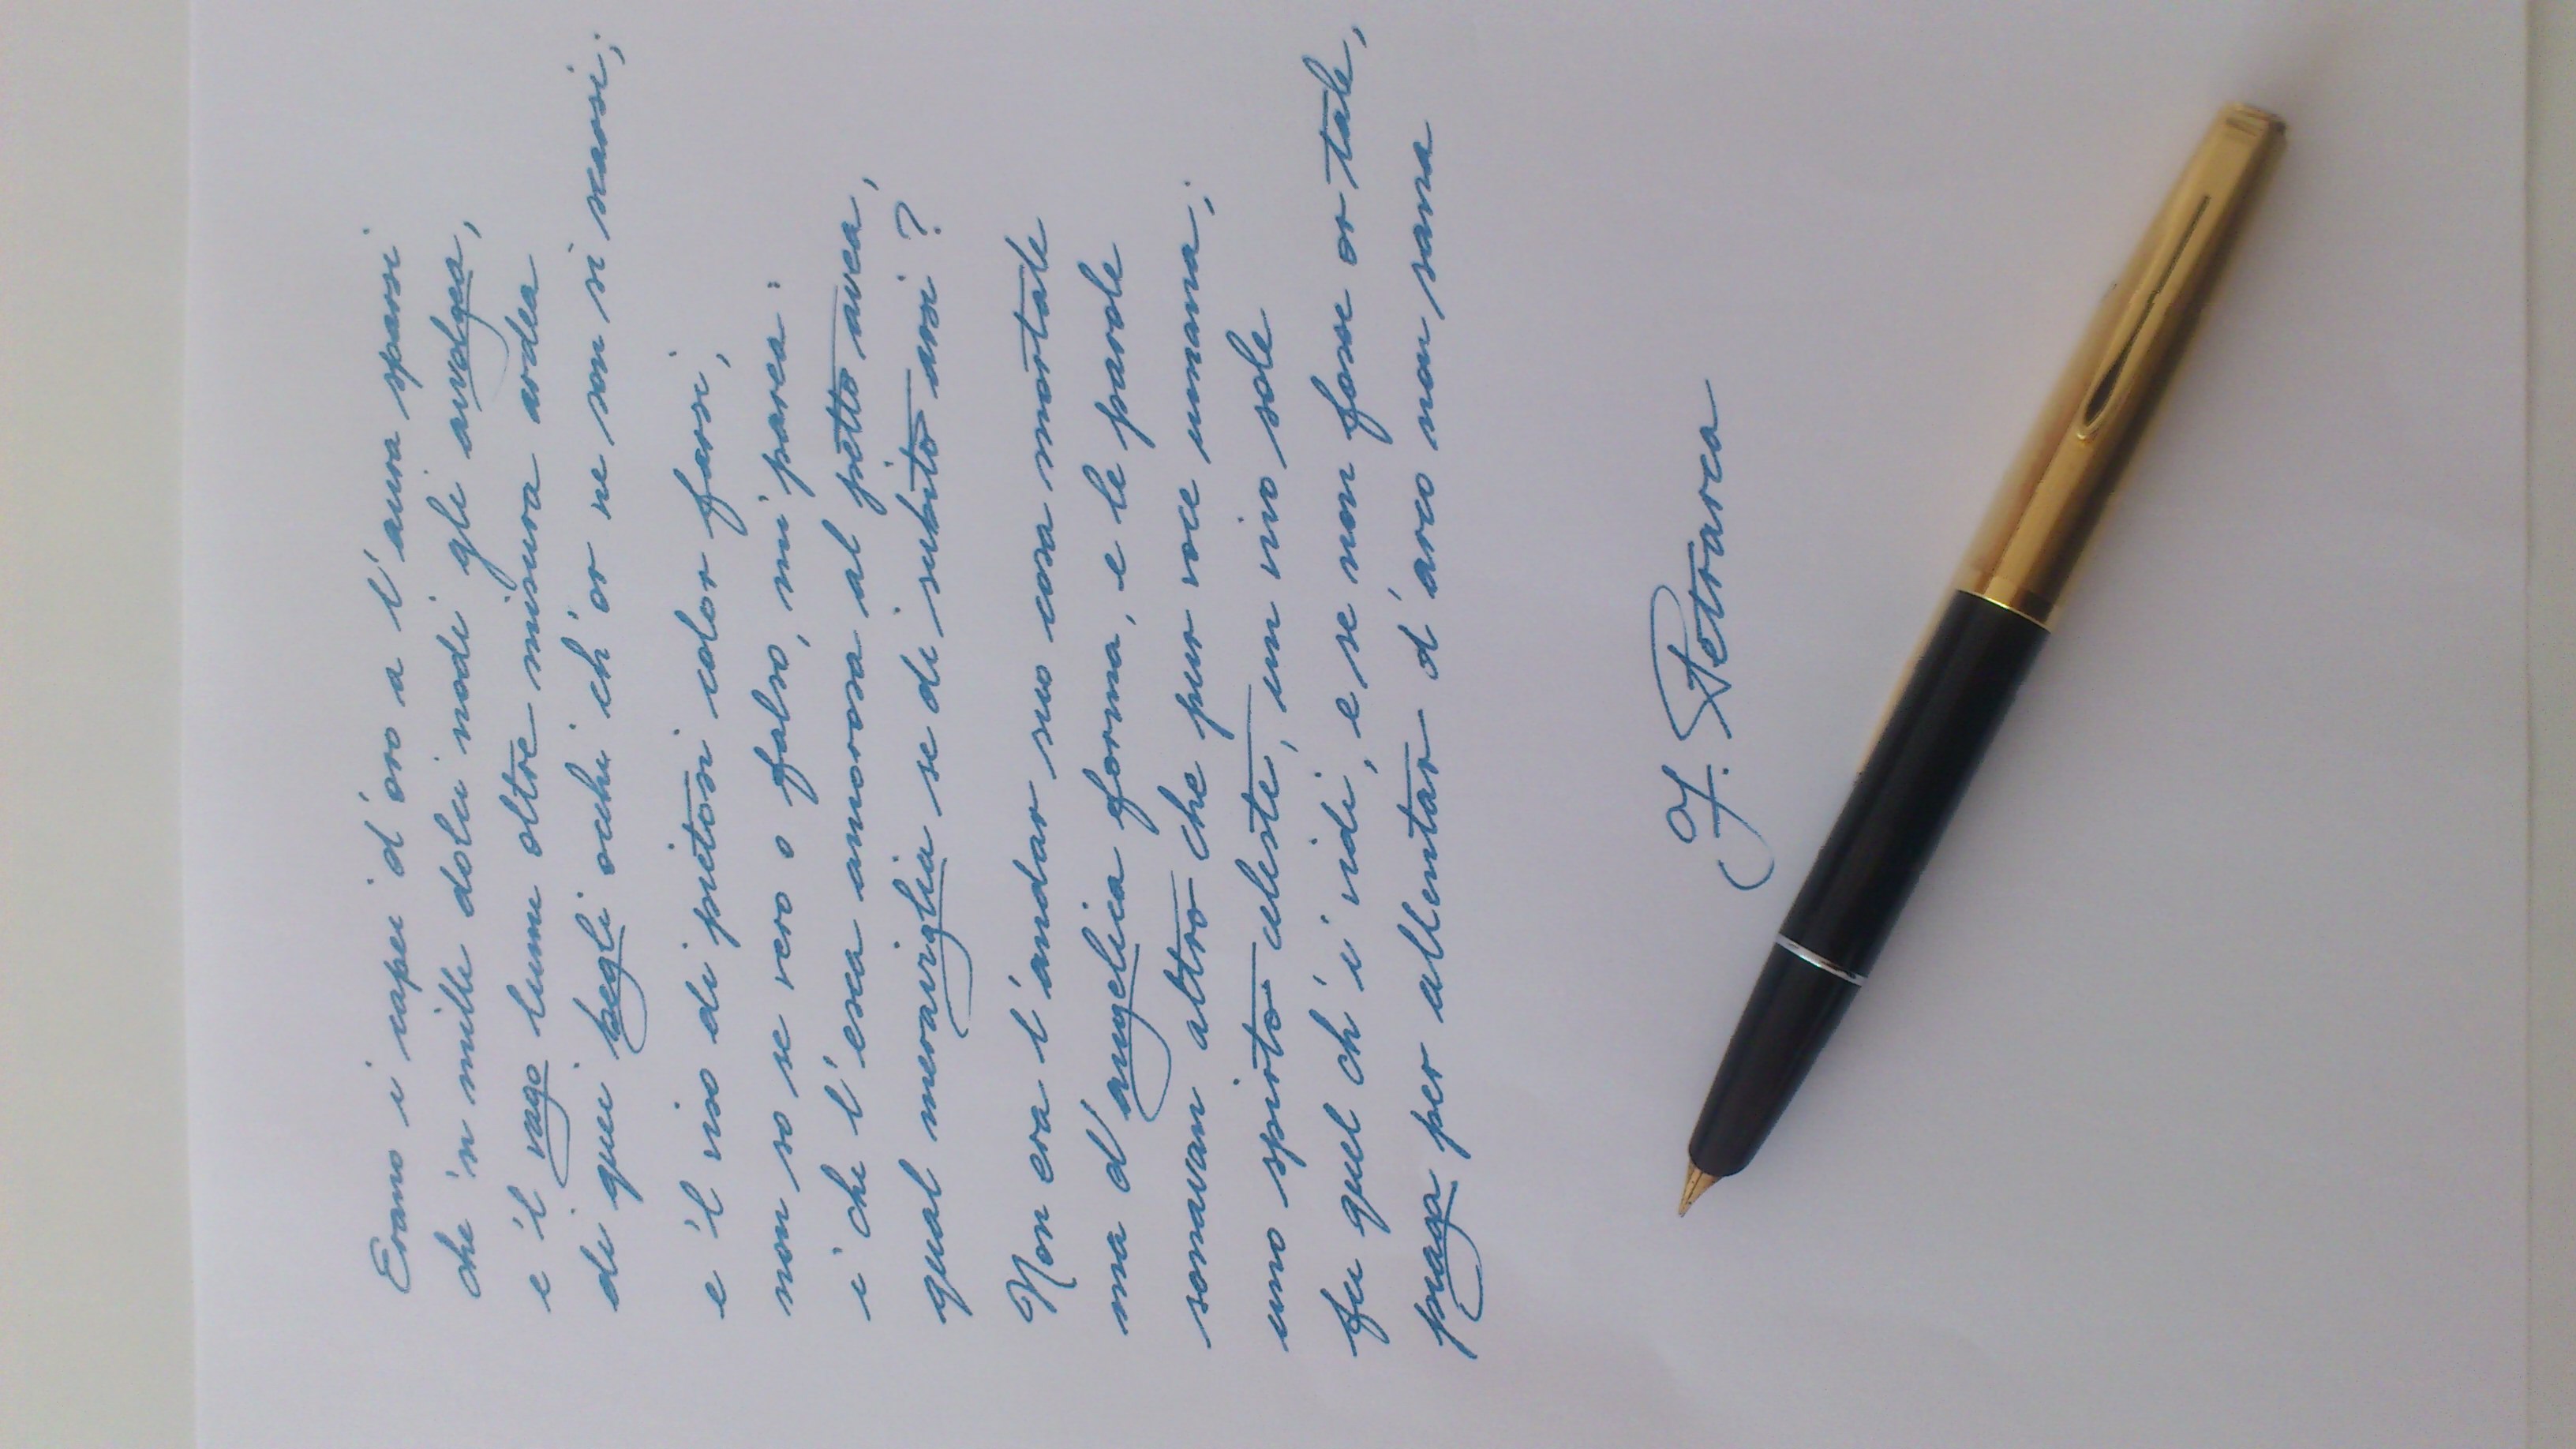 Erano i capei d'oro a l'aura sparsi
che 'n mille dolci nodi gli avolgea,
e 'l vago lume oltre misura ardea
di quei begli occhi ch'or ne son sì scarsi;
e 'l viso di pietosi color farsi,
non so se vero o falso, mi parea:
i' che l'esca amorosa al petto avea,
qual meraviglia se di subito arsi?
Non era l'andar suo cosa mortale
ma d'angelica forma, e le parole
sonavan altro che pur voce umana;
uno spirto celeste, un vivo sole
fu quel ch'i' vidi, e se non fosse or tale,
piaga per allentar d'arco non sana
F. Petrarca